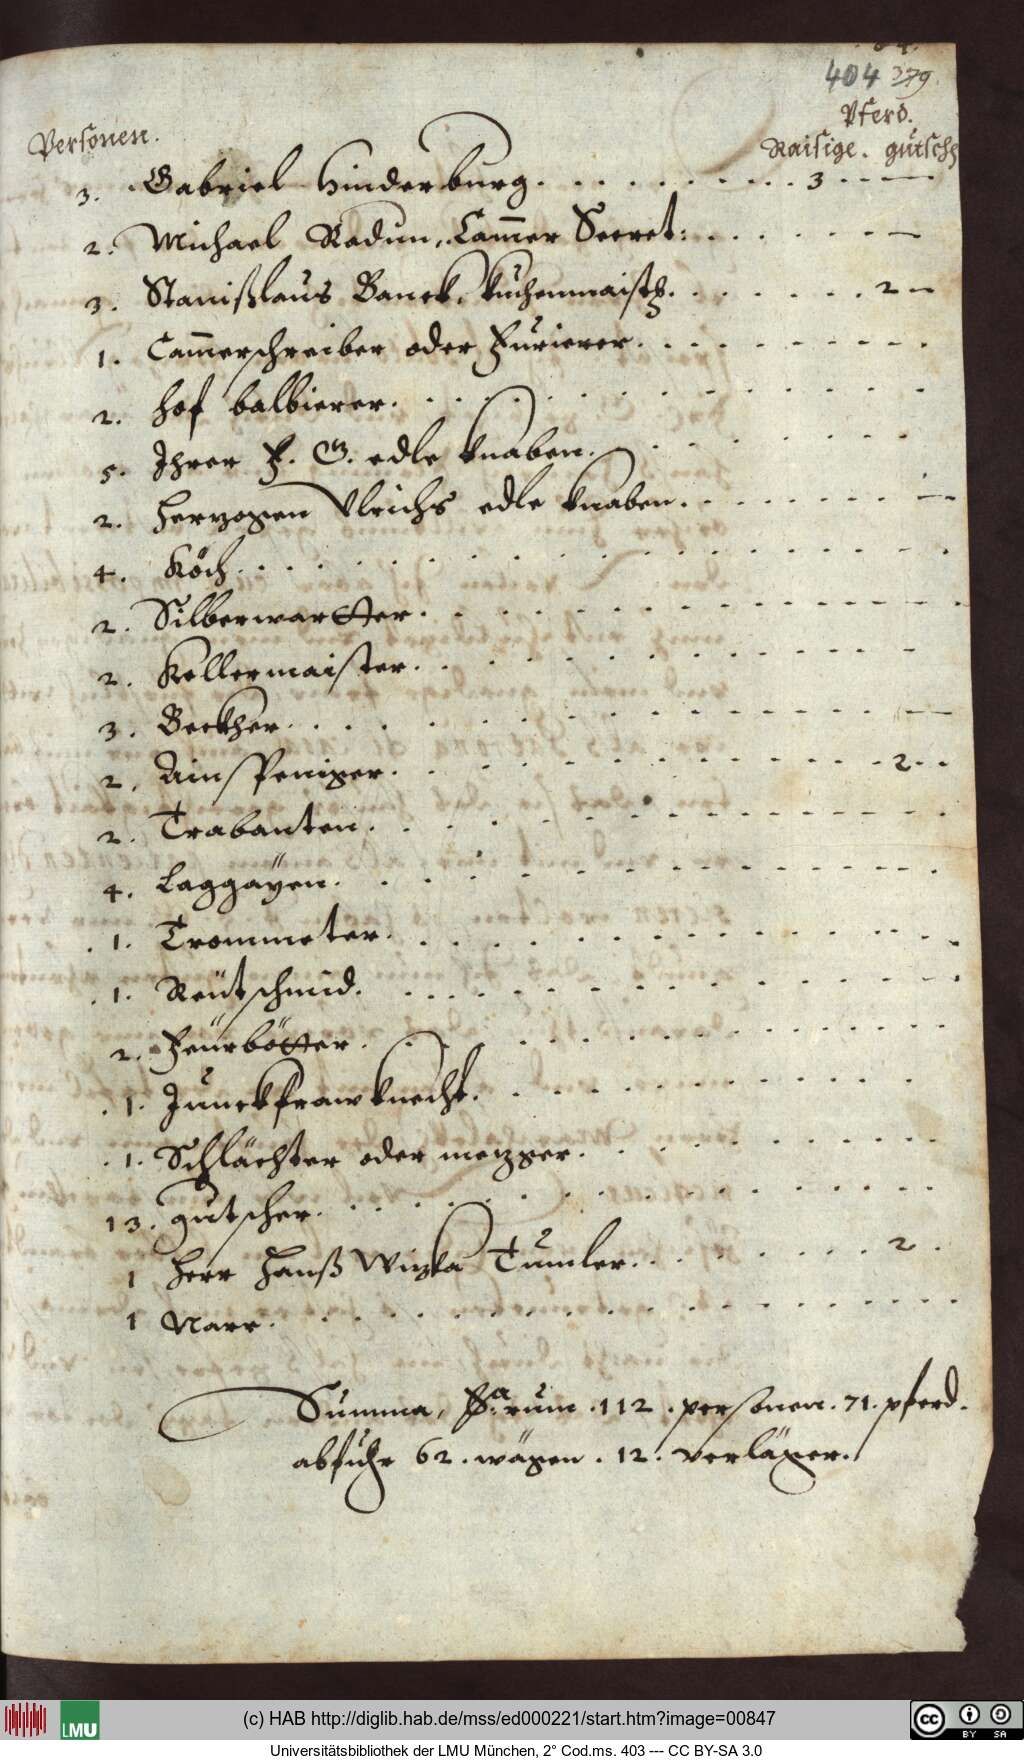 404 379
Pferd.
Personen.
Raisige. gütsch
3. Gabriel Hinderburg. 3
2. Michael Radun, Cam̄er Secret:
3. Stanißlaus Banck, Kuchenmaistr. 2
1. Cam̄erschreiber oder Furierer.
2. Hof balbierer.
5. Ihrer F. G. edle Knaben.
2. Hertzogen Vlrichs edle Knaben.
4. Köch.
2. Silberwartter.
2. Kellermaister.
3. Beckher.
2. Ainspeniger. 2
2. Trabanten.
4. Laggaÿen.
1. Trommeter.
1. Reütschmid.
2. Feürbötter.
1. Junckfraw knecht.
1. Schlächter oder metzger.
13. gutscher.
1 Herr Hanß Tumler. 2
1 Narr.
Summa, rum. 112. personen. 71. pferd.
abfuhr 62. wägen. 12.
LMU
(c) HAB http://diglib.hab.de/mss/ed000221/start.htm?image=00847
cc BY SA
Universitätsbibliothek der LMU München, 2° Cod.ms. 403 --- CC BY-SA 3.0